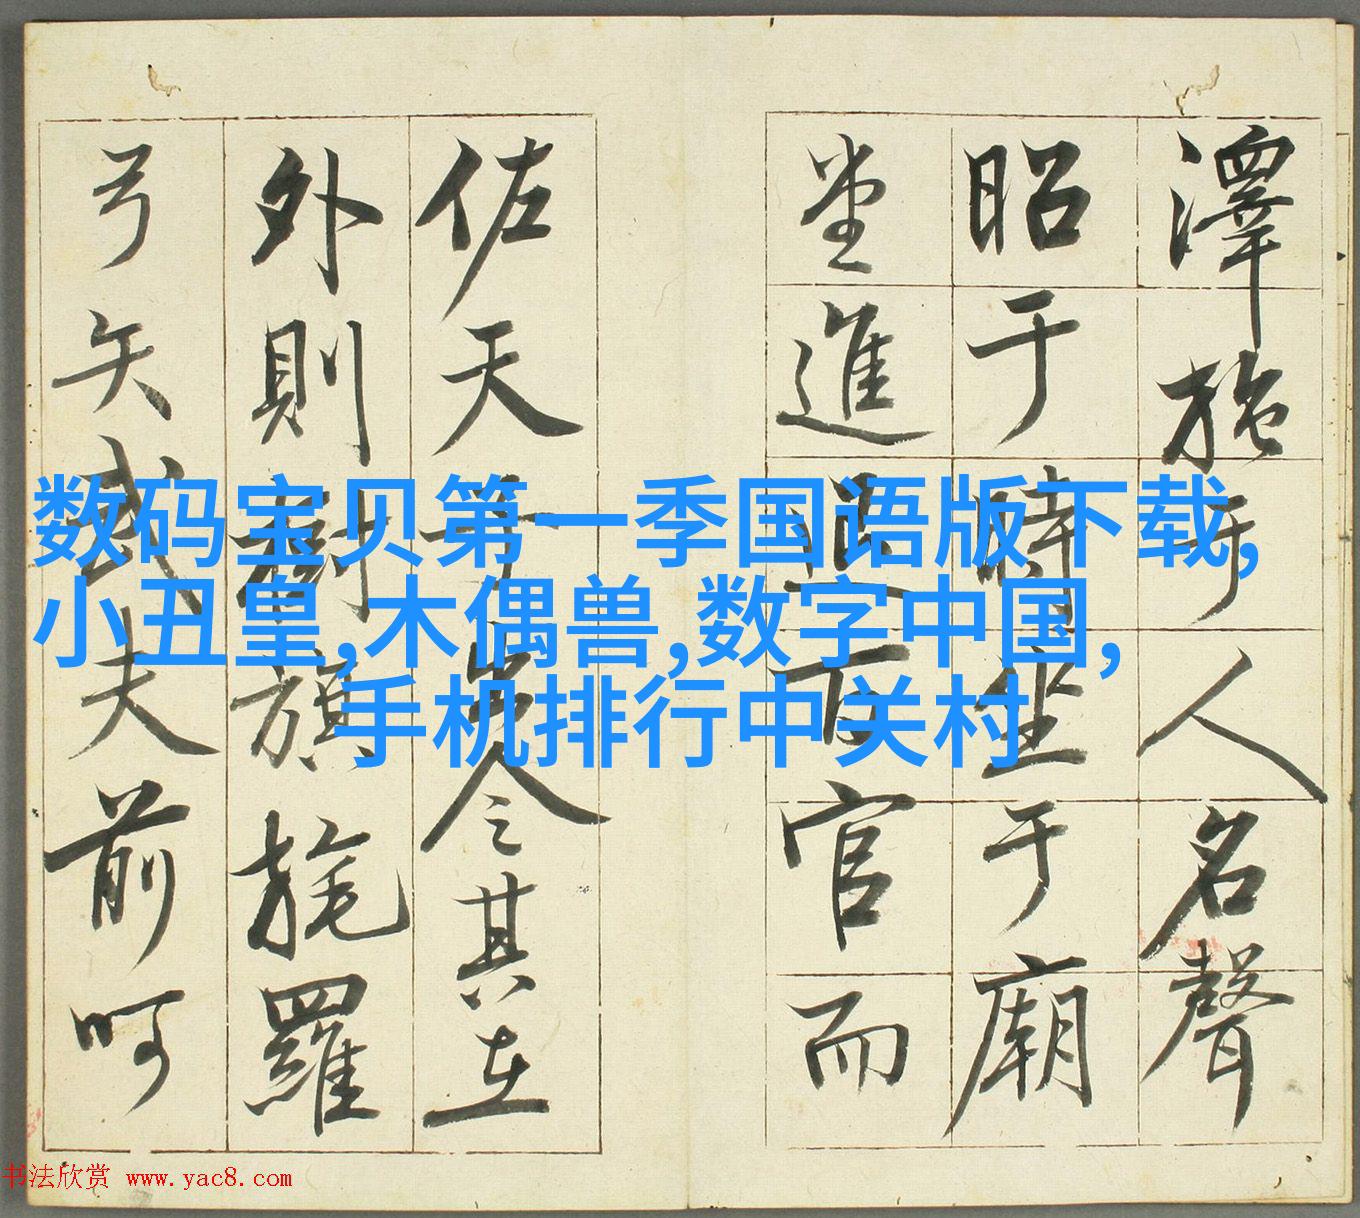 澤施于人名聲
昭于時坐于廟
堂進退百官而
佐天子出令其在
外則樹旗旄羅
弓矢武夫前呵
数码宝贝第一季国语版下载,
小丑皇,木偶兽,数字中国,
手机排行中关村
书法欣赏 www.yac8.com